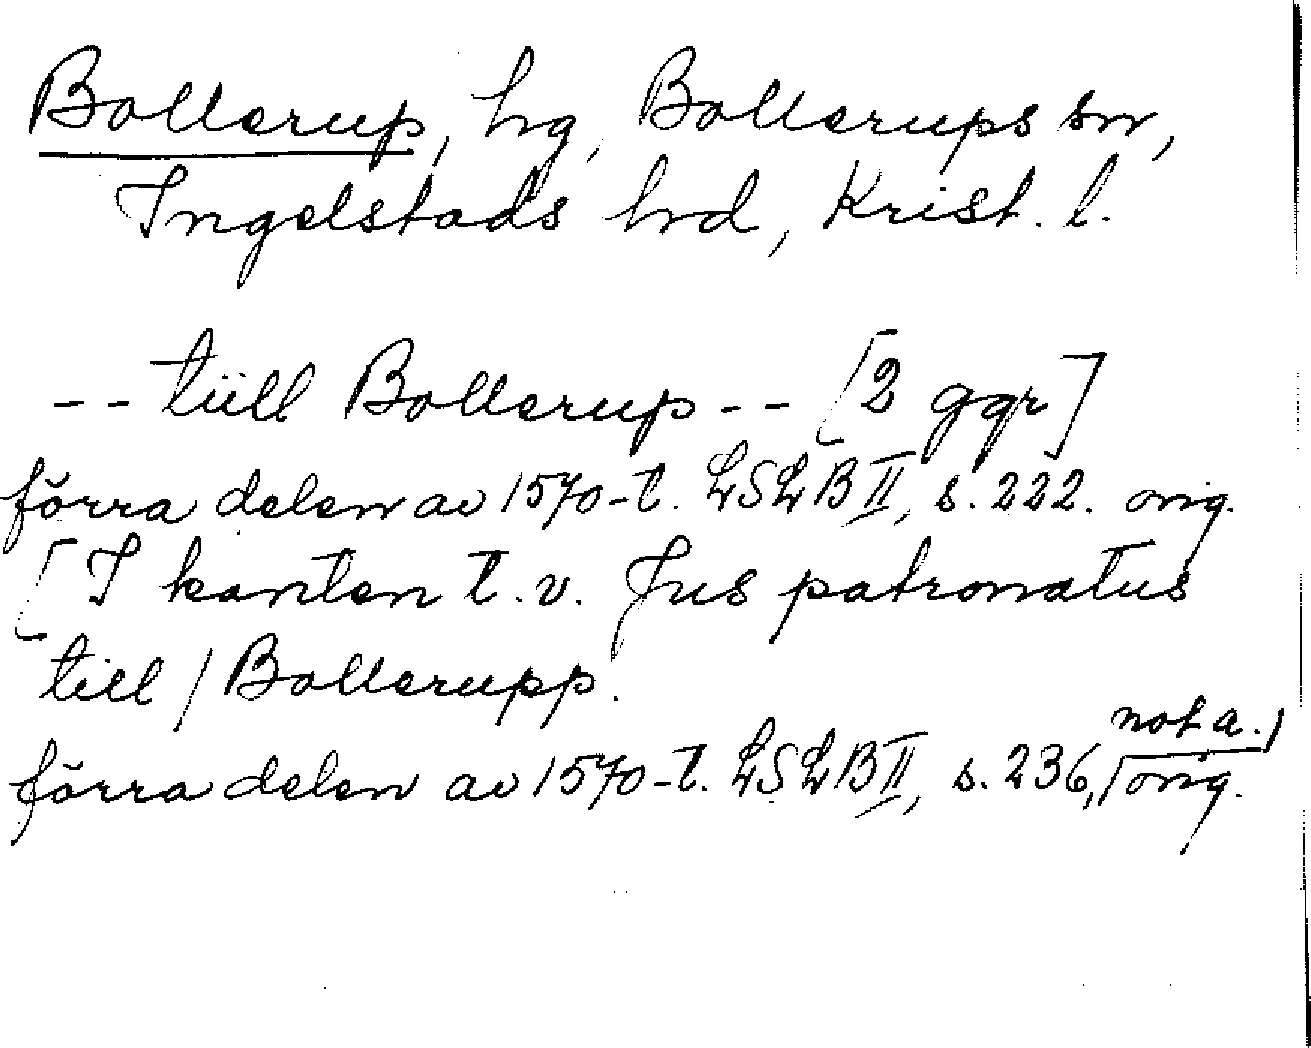 Bollerup, hg, Bollerups sn,
Ingelstads hd, Krist. l.
-- tiill Bollerup -- [2 ggr]
förra delen av 1570-t. LSLB II, s. 222. orig.
[I kanten t.v. Jus patronatus
till / Bollerupp.
förra delen av 1570-t. LSLB II, s. 236, not a.) orig.